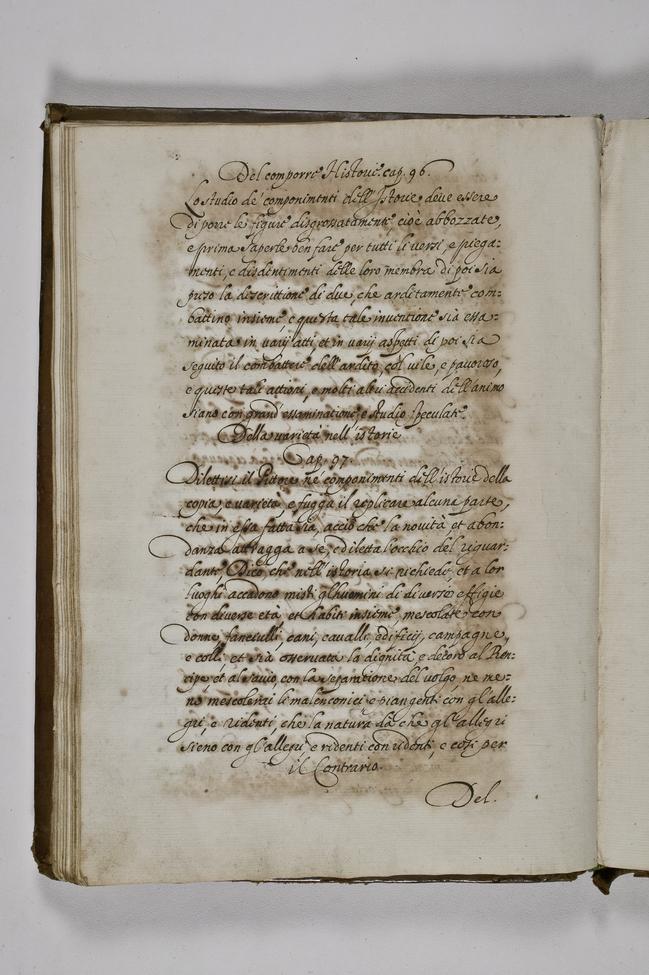 Del comporre Historie. cap. 96.
Lo studio de' componimenti dell'Istorie deve essere
di porre le figure disgrossatamente cioè abbozzate,
e prima saperle ben fare per tutti li versi, e piega-
menti, e disdentimenti delle loro membra di poi sia
preso la descrittione di due, che arditamente com-
battino insieme e questa tale inventione sia essa-
minata in varij atti, et in varij aspetti di poi sia
seguito il combattere dell'ardito, col vile, e pauroso,
e queste tali attioni, e molti altri accidenti dell'animo
siano con grand'essaminatione, e studio speculate
Della varietà nell'istorie
Cap. 97.
Dilettisi il Pittore ne' componimenti dell'istorie della
copia, e varietà, e fugga il replicare alcune parte,
che in essa fatta sia, acciò che la novità et abon-
danza attragga a se, e diletta l'occhio del riguar-
dante, Dico, che nell'istoria si richiede, et a lor
luoghi accadono misti gl'huomini di diverse effigie
con diverse età, et habiti insieme mescolate con
donne, fanciulli, cani, cavalli, edificij, campagne,
e colli, et sia osservata la dignità e decoro al Pren-
cipe, et al savio, con la separatione del volgo, ne me-
no mescolerai li malenconici e piangenti con gl'alle-
gri, e ridenti, che la natura dà che gl'allegri
sieno con gl'allegri, e ridenti con ridenti, e così per
il Contrario.
Del.